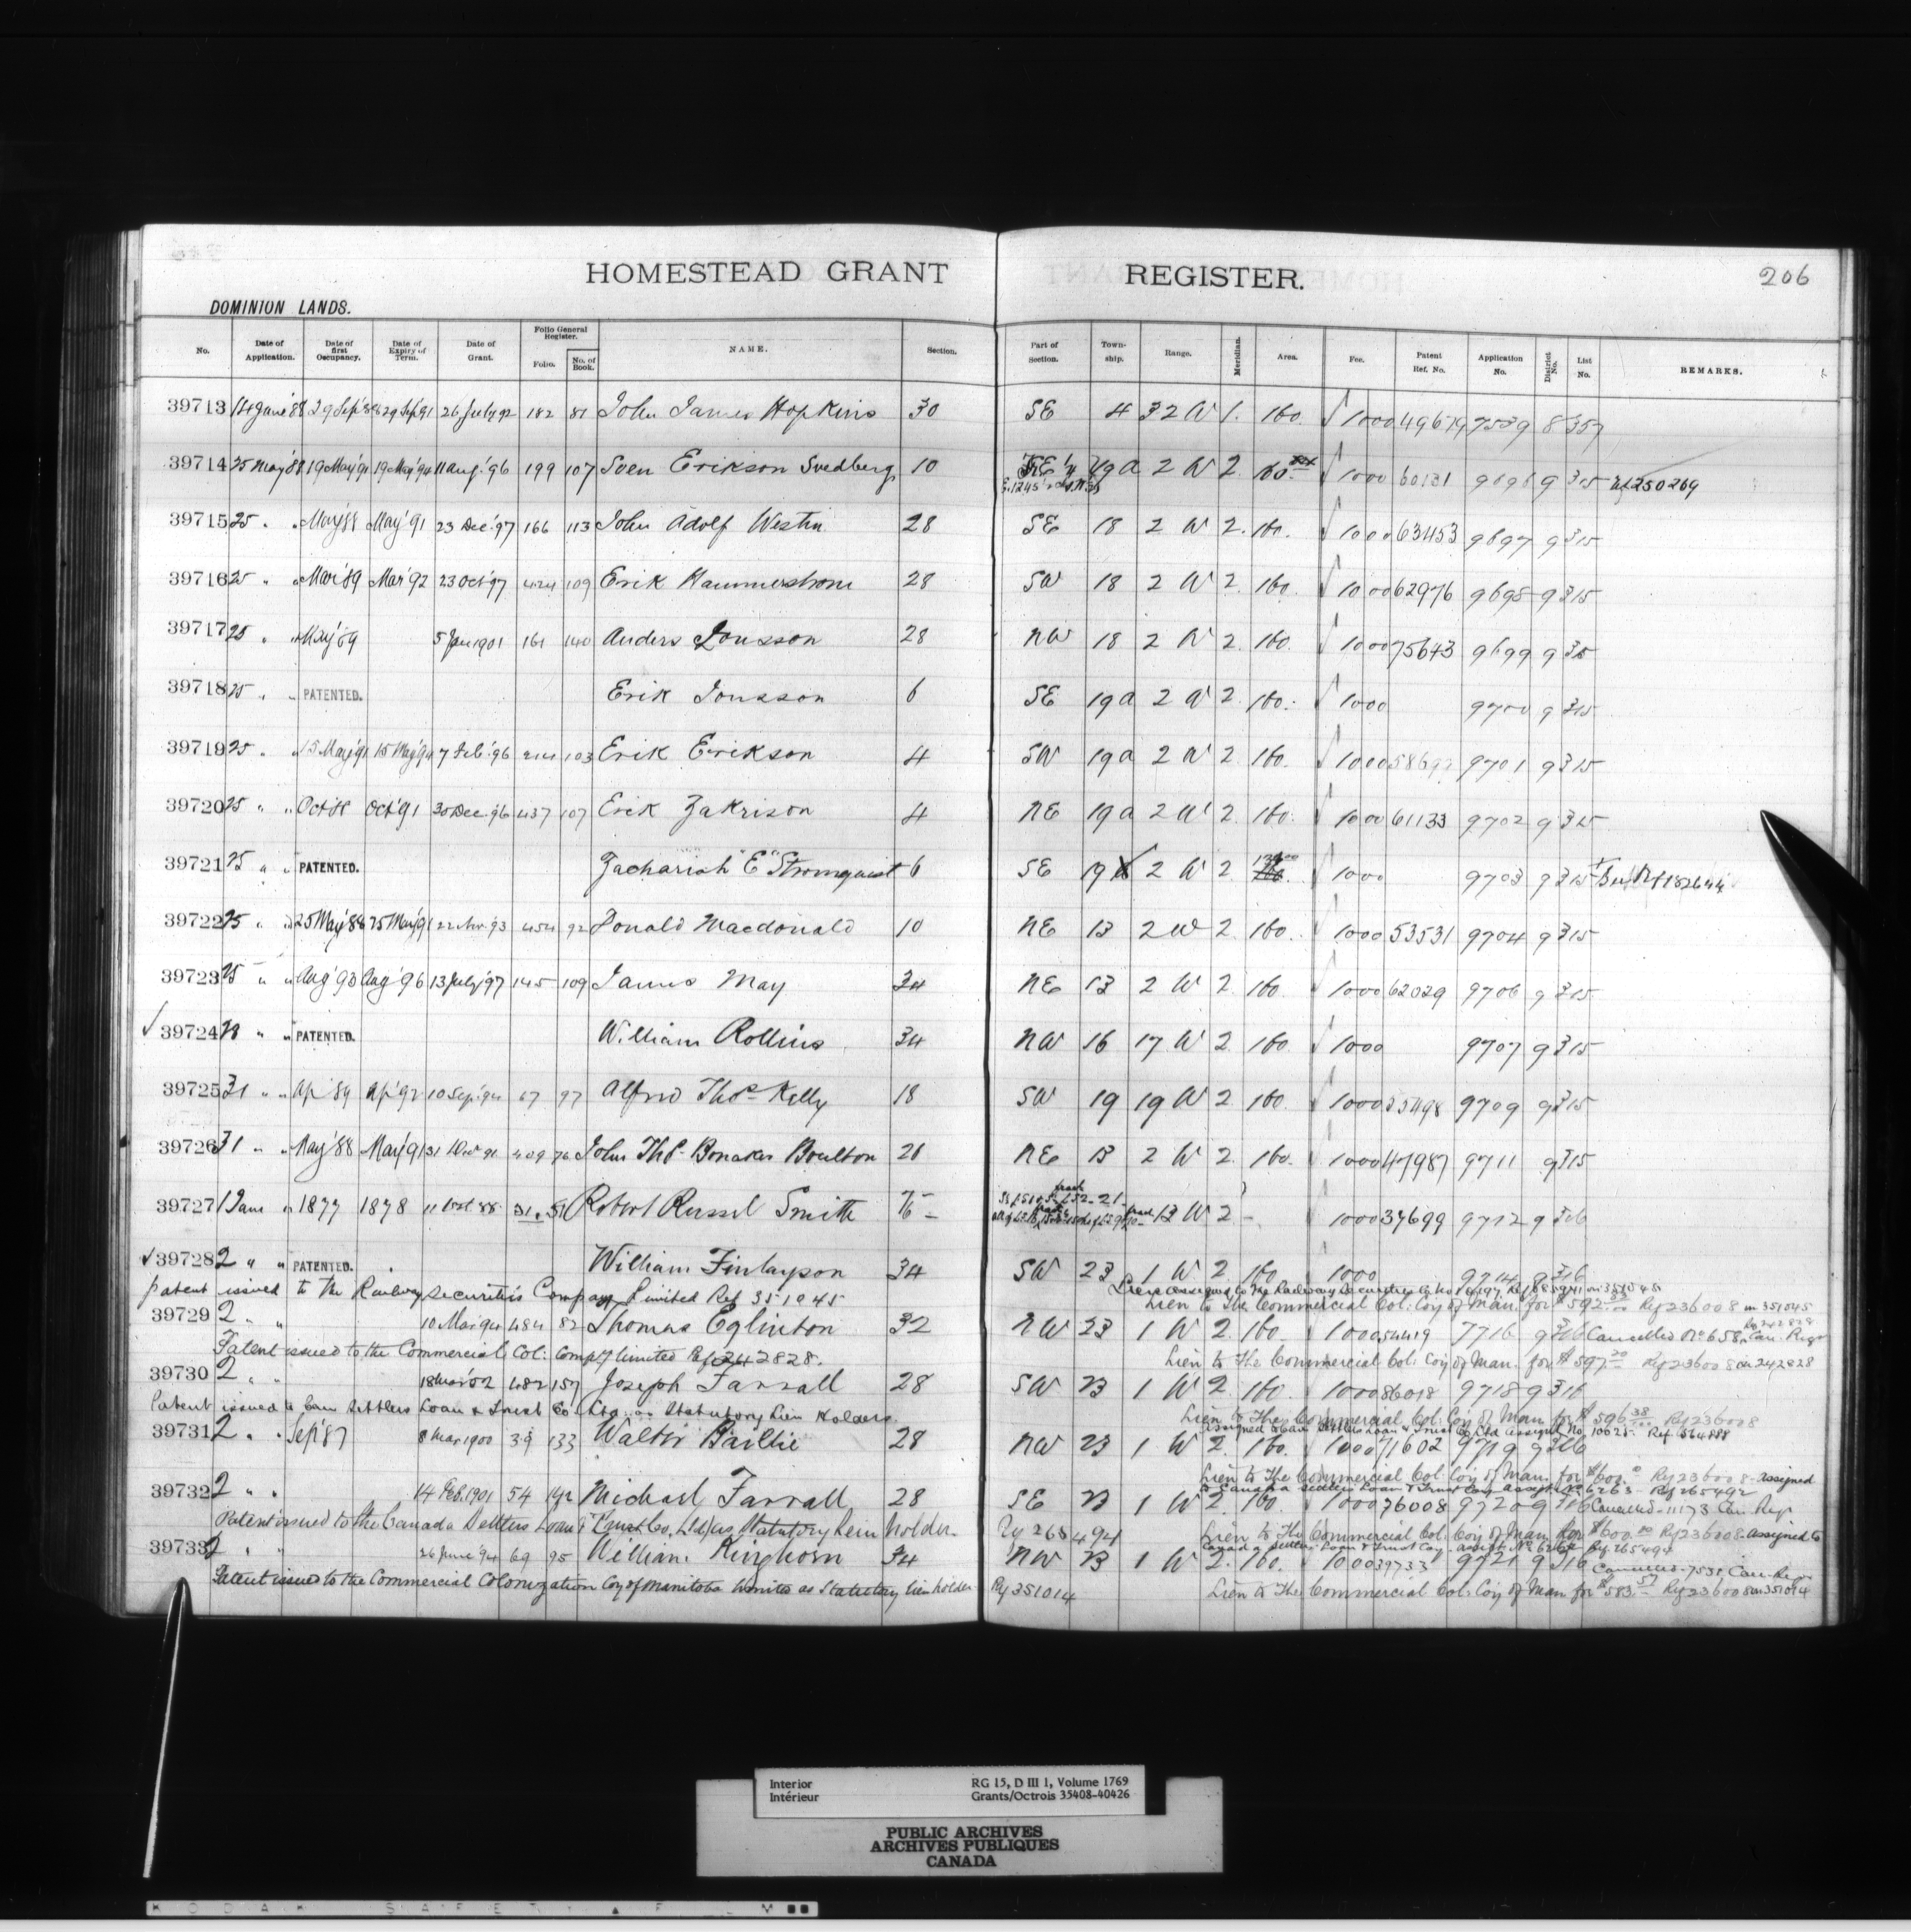 HOMESTEAD GRANT REGISTER. 206
DOMINION LANDS.
No. Date of Application. Date of first Occupancy. Date of Expiry of Term. Date of Grant. Folio General Register. Folio. No. of Book. NAME. Section. Part of Section. Township. Range. Meridian. Area. Fee. Patent Ref. No. Application No. District No. List No. REMARKS.
39713 14 June '88 29 Sep '88 29 Sep '91 26 July 92 182 81 John James Hopkins 30 SE 4 32 W 1. 160. 1000 49679 7539 8 357
39714 25 May '88 19 May '91 19 May '94 11 Aug. '96 199 107 Sven Erikson Svedberg 10 19a 2 W 2. 1000 60131 9696 9 315 Ref 250269
39715 25 " " May '88 May '91 23 Dec '97 166 113 John Adolf Westin 28 SE 18 2 W 2. 160. 1000 63453 9697 9 315
39716 25 " " Mar '89 Mar '92 23 Oct '97 424 109 Erik Hammerstrom 28 SW 18 2 W 2. 160. 1000 62976 9698 9 315
39717 25 " " May '89 5 Jan 1901 161 140 Anders Jonsson 28 NW 18 2 W 2. 160. 1000 75643 9699 9 315
39718 25 " " PATENTED. Erik Jonsson 6 SE 19a 2 W 2 160. 1000 9700 9 315
39719 25 " " 15 May '91 15 May '94 7 Feb '96 214 103 Erik Erikson 4 SW 19a 2 W 2. 160. 1000 58692 9701 9 315
39720 25 " " Oct '88 Oct '91 30 Dec. '96 437 107 Erik Zakrison 4 NE 19a 2 W 2. 160. 1000 61133 9702 9 315
39721 25 " " PATENTED. Zachariah "E" Stromquist 6 SE 19 2 W 2. 1000 9703 9 315 Ref 182644
39722 25 " " 25 May '88 25 May '91 22 Nov '93 454 92 Donald Macdonald 10 NE 13 2 W 2. 160. 1000 53531 9704 9 315
39723 25 " " Aug '93 Aug '96 13 July '97 145 109 James May 34 NE 13 2 W 2. 160. 1000 62029 9706 9 315
39724 28 " " PATENTED. William Rollins 34 NW 16 17 W 2. 160. 1000 9707 9 315
39725 31 " " Apr '89 Apr '92 10 Sep. '94 67 97 Alfred Thos. Kelly 18 SW 19 19 W 2. 160. 1000 55498 9709 9 315
39726 31 " " May '88 May '91 31 91 409 76 John Thos. Boulton 26 NE 13 2 W 2. 160. 1000 47987 9711 9 315
39727 1 June " 1877 1878 11 Oct 88 31. 51 Robert Russel Smith 13 W 2 - 1000 37699 9712 9 316
39728 2 " " PATENTED. William Finlayson 34 SW 23 1 W 2. 160 1000 9714 9 316
Patent issued to the Railway Securities Company Limited Ref 351045
Lien to The Commercial Col: Coy of Man. for $592 Ref 236008 in 351045
39729 2 " " 10 Mar '94 484 82 Thomas Eglinton 32 NW 23 1 W 2. 160. 1000 54419 7716 9 316 Cancelled No 658 Can. Regr
Patent issued to the Commercial Col: Comp'y limited Ref 242828.
Lien to The Commercial Col: Coy of Man. for $597.20 Ref 236008 in 242828
39730 2 " " 18 Mar '02 482 157 Joseph Farrall 28 SW 23 1 W 2. 160. 1000 86018 9718 9 316
Patent issued to Can Settlers Loan & Trust Co Ltd. as Statutory Lien Holders.
Lien to The Commercial Col: Coy of Man for $596 38/100 Ref 236008
assigned to Can Settlers Loan & Trust Co Ltd Assignt No. 10625 Ref 564888
39731 2 " " Sep '87 8 Mar 1900 39 133 Walter Baillie 28 NW 23 1 W 2. 160. 1000 71602 9719 9 316
Lien to The Commercial Col. Coy of Man. for $600. Ref 236008 - assigned
to Canada Settlers Loan & Trust Coy assignt No 6263 - Ref 265492
39732 2 " " 14 Feb. 1901 54 142 Michael Farrall 28 SE 23 1 W 2. 160. 1000 76008 9720 9 316 Cancelled - 11173 Can. Reg
Patent issued to the Canada Settlers Loan & Trust Co. Ltd as Statutory Lien holder. Ref 265494
Lien to The Commercial Col. Coy of Man for $600. Ref 236008 - assigned to
Canada Settlers Loan & Trust Coy - assignt No 6262 Ref 265494
39733 2 " " 26 June '94 69 95 William Kinghorn 34 NW 23 1 W 2. 160. 1000 39733 9721 9 316 Cancelled - 7538 Can. Reg
Patent issued to the Commercial Colonization Coy of Manitoba limited as Statutory lien holder Ref 351014
Lien to The Commercial Col: Coy of Man for $583.57 Ref 236008 in 351014
Interior
Intérieur
RG 15, D III 1, Volume 1769
Grants/Octrois 35408-40426
PUBLIC ARCHIVES
ARCHIVES PUBLIQUES
CANADA
KODAK SAFETY FILM